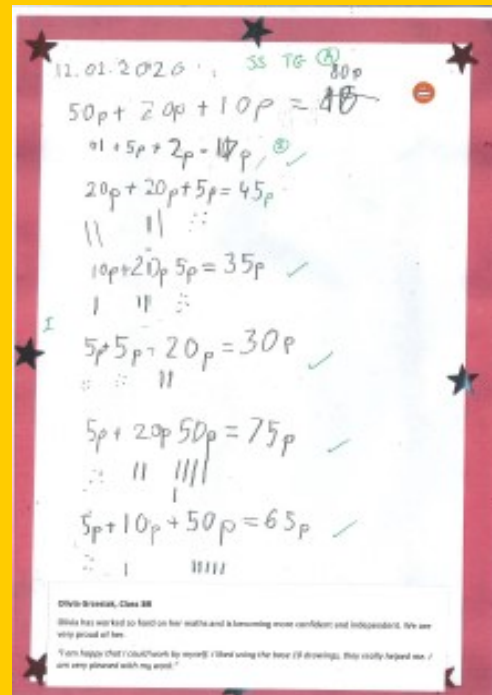 12.01.2020 SS TG
80p
50p + 20p + 10p =
5p + 2p = 17p
20p + 20p + 5p = 45p
10p + 20p 5p = 35p
5p + 5p - 20p = 30p
5p + 20p 50p = 75p
5p + 10p + 50p = 65p
Class 3B
Olivia has worked so hard on her maths and is becoming more confident and independent. We are
very proud of her.
"I am happy that I could work by myself. I liked using the base 10 drawings, they really helped me. I
am very pleased with my work."